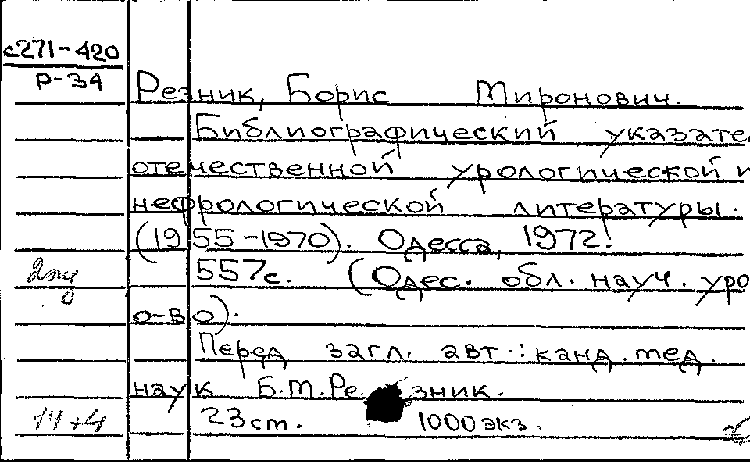 с271-420
Р-34
Резник, Борис Миронович.
Библиографический указате
отечественной урологической и
нефрологической литературы.
(1955-1970). Одесса, 1972.
557с. (Одес. обл. науч. уро
о-во).
Перед загл. авт.: канд. мед.
наук Б.М.Резник.
23 ст. 1000 экз.